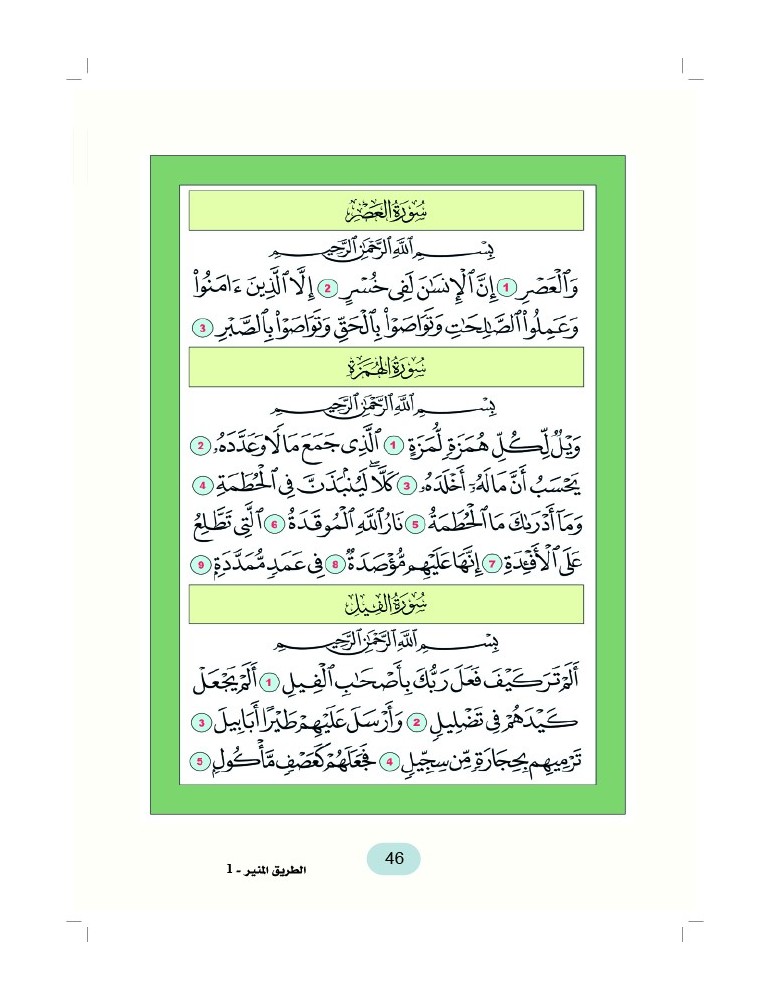 سُورَةُ العَصْرِ
بِسْمِ اللَّهِ الرَّحْمَٰنِ الرَّحِيمِ
وَالْعَصْرِ 1 إِنَّ الْإِنسَٰنَ لَفِى خُسْرٍ 2 إِلَّا الَّذِينَ ءَامَنُوا۟
وَعَمِلُوا۟ الصَّٰلِحَٰتِ وَتَوَاصَوْا۟ بِالْحَقِّ وَتَوَاصَوْا۟ بِالصَّبْرِ 3
سُورَةُ الهُمَزَةِ
بِسْمِ اللَّهِ الرَّحْمَٰنِ الرَّحِيمِ
وَيْلٌ لِّكُلِّ هُمَزَةٍ لُّمَزَةٍ 1 الَّذِى جَمَعَ مَالًا وَعَدَّدَهُۥ 2
يَحْسَبُ أَنَّ مَالَهُۥٓ أَخْلَدَهُۥ 3 كَلَّا ۖ لَيُنۢبَذَنَّ فِى الْحُطَمَةِ 4
وَمَآ أَدْرَىٰكَ مَا الْحُطَمَةُ 5 نَارُ اللَّهِ الْمُوقَدَةُ 6 الَّتِى تَطَّلِعُ
عَلَى الْأَفْـِٔدَةِ 7 إِنَّهَا عَلَيْهِم مُّؤْصَدَةٌ 8 فِى عَمَدٍ مُّمَدَّدَةٍ 9
سُورَةُ الفِيلِ
بِسْمِ اللَّهِ الرَّحْمَٰنِ الرَّحِيمِ
أَلَمْ تَرَ كَيْفَ فَعَلَ رَبُّكَ بِأَصْحَٰبِ الْفِيلِ 1 أَلَمْ يَجْعَلْ
كَيْدَهُمْ فِى تَضْلِيلٍ 2 وَأَرْسَلَ عَلَيْهِمْ طَيْرًا أَبَابِيلَ 3
تَرْمِيهِم بِحِجَارَةٍ مِّن سِجِّيلٍ 4 فَجَعَلَهُمْ كَعَصْفٍ مَّأْكُولٍ 5
46
الطريق المنير - 1